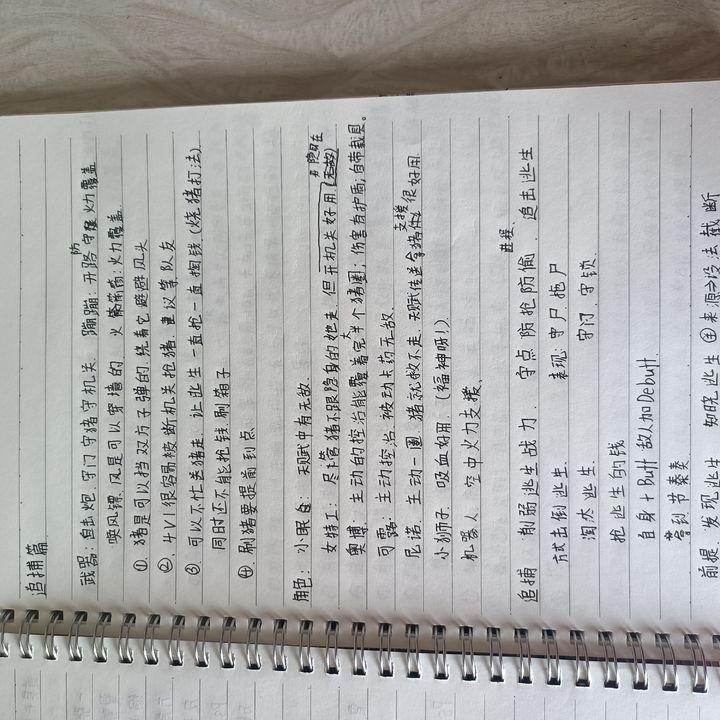 追捕篇
武器：自击炮 守门守猪守机关、蹦蹦：开路 防守 火力覆盖
唤风镖、风是可以穿墙的 火箭筒：火力覆盖
① 猪是可以挡双方子弹的，绕着它避避风头
②、4V1 很容易被断机关抢猪 建议等队友
③、可以不忙送猪走，让逃生一直抢一直掏钱（烧猪打法）
同时还不能抢钱刷箱子
④ 刷猪要提前到点
角色：小眠兔：天赋中有无敌
女特工：尽管猪不跟隐身的她走 但开机关好用（无敌） 有隐时在
奥博：主动的控治能覆盖完大半个猪圈；伤害有护盾，自带截退。
可露：主动控治，被动卡药无敌
尼诺：主动一圈，猪就救不走，天赋传送 支援 拿猪件 很好用
小狮子：吸血好用，（福神呀！）
机器人 空中火力支援、
追捕 削弱逃生战力、守点 防抢防偷 进程、追击逃生
方式 击倒逃生 表现：守尸 拖尸
淘汰逃生 守门、守锁
抢逃生的钱
自身+Buff 敌人加Debuff
拿到节奏奏
前提、发现逃生 知晓逃生 ④ 来源→设法截断